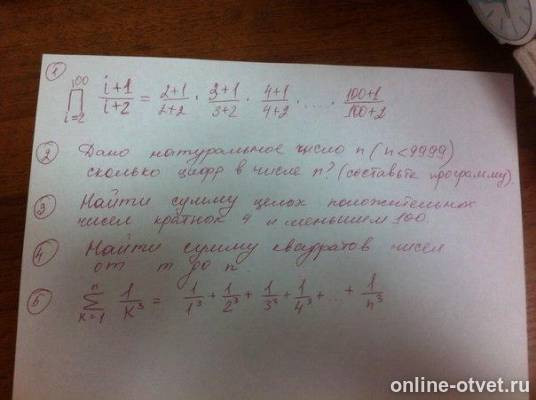 ① ∏_{i=2}^{100} \frac{i+1}{i+2} = \frac{2+1}{2+2} · \frac{3+1}{3+2} · \frac{4+1}{4+2} · .... · \frac{100+1}{100+2}
② Дано натуральное число n (n<9999)
сколько цифр в числе n? (составьте программу).
③ Найти сумму целых положительных
чисел кратных 4 и меньшем 100.
④ Найти сумму квадратов чисел
от m до n.
⑤ ∑_{k=1}^{n} \frac{1}{k^3} = \frac{1}{1^3} + \frac{1}{2^3} + \frac{1}{3^3} + \frac{1}{4^3} + ... + \frac{1}{n^3}
online-otvet.ru